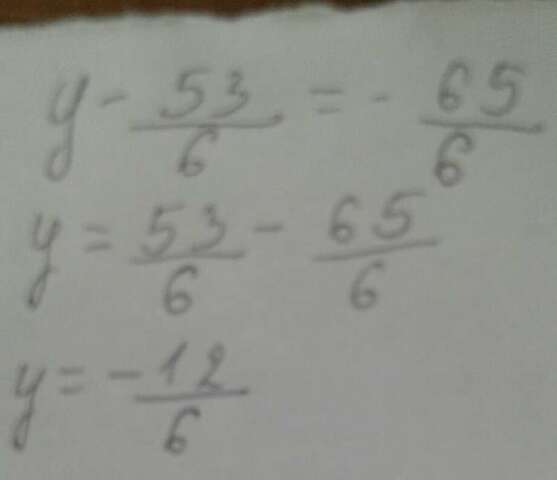 y - 53/6 = - 65/6
y = 53/6 - 65/6
y = -12/6